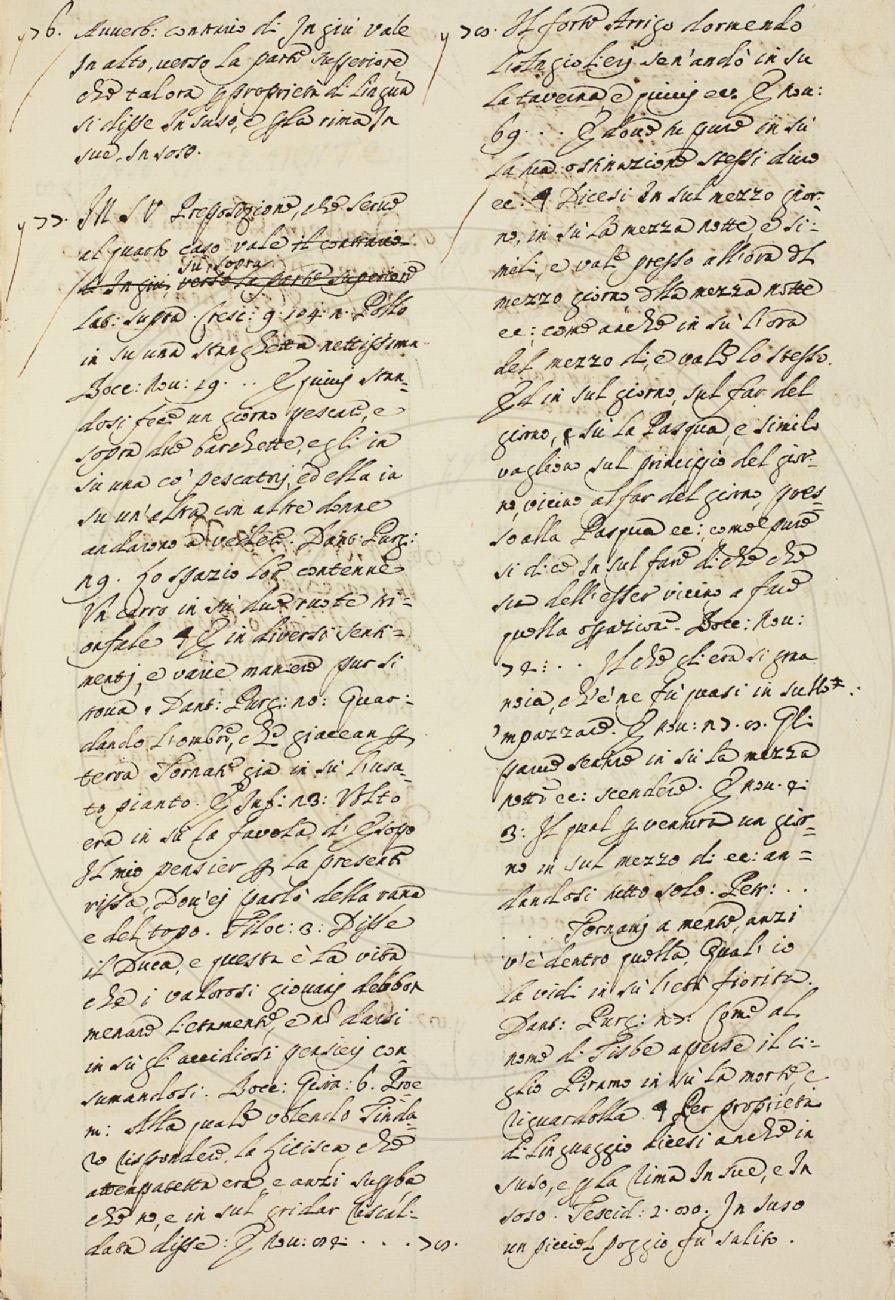 76. Avverb: contrario di In giù vale
In alto, verso la parte superiore
che talora p proprietà di lingua
si disse In suso, e p la rima In
sue, In soso.
77. IN SU Preposizione, che serve
al quarto caso vale il contrario
su, sopra
di In giù, verso la parte superiore
Lab: supra. Cresc: 9. 104. n. Posto
in su una stanghetta nettissima.
Bocc: Nov: 19. .. E quivi stan=
dosi fece un giorno pescare, e
sopra due barchette, egli in
su una co' pescatorj, ed ella in
su un'altra con altre donne
andarono a vedere. Dant: Purg:
29. Lo spazio lor contenne
Un carro in su due ruote tri=
onfale ¶ E in diversi senti=
mentj, e varie maniere pur si
trova. Dant: Purg: 20: Guar=
dando l'ombre, che giacean p
terra Tornate già in su l'usa=
to pianto. E Inf: 23: Volto
era in su la favola di Esopo
Il mio pensier p la presente
rissa, Dov'ej parlò della rana
e del topo. Filoc: 3: Disse
il Duca, e questa è la vita
che i valorosi giovanj debbon
menare lietamente, e nõ darsi
in su gli accidiosi pensierj con=
sumandosi. Bocc: Gior: 6. Proe
m: Alla quale volendo Tinda=
ro rispondere, la Licisca, che
attempatetta era e anzi superba
che no, e in sul gridar riscal=
data disse: E Nov: 32. . . . 78.
78. Il forte Arrigo dormendo
li Angiolierj sen'andò in su
la taverna, e quivj ec. E Nov:
69. .. E dove tu pure in su
la tua ostinazione stessi duro
ec: ¶ Dicesi In sul mezzo gior=
no, in su la mezza notte, e si=
mili, e vale presso all'ora del
mezzo giorno della mezza notte
ec: come anche in su l'ora
del mezzo dì, e vale lo stesso.
Ed in sul giorno, sul far del
giorno, e su la Pasqua, e simili
vagliono sul principio del gior=
no, vicino al far del giorno, pres=
so alla Pasqua ec: come pure
si dice In sul fare di che che
sia dell'esser vicino a fare
quella operazione. Bocc: Nov:
72: .. Il che gli era sì gran
noia, ch'e' ne fu quasi in sullo
'mpazzare. E Nov: 27. 33. Gli
parve sentire in su la mezza
notte ec: scendere. E Nov. 4:
3: Il qual p ventura un gior=
no in sul mezzo dì ec: an=
dandosi tutto solo. Petr: . .
. . . Tornamj a mente, anzi
v'è dentro quella, Qual' io
la vidi in su l'età fiorita.
Dant: Purg: 27: Come al
nome di Tisbe aperse il ci=
glio Piramo in su la morte, e
riguardolla. ¶ Per proprietà
di Linguaggio dicesi anche in
suso, e p la rima In sue, e In
soso. Teseid: 2. 30. In suso
un picciol poggio fu salito.